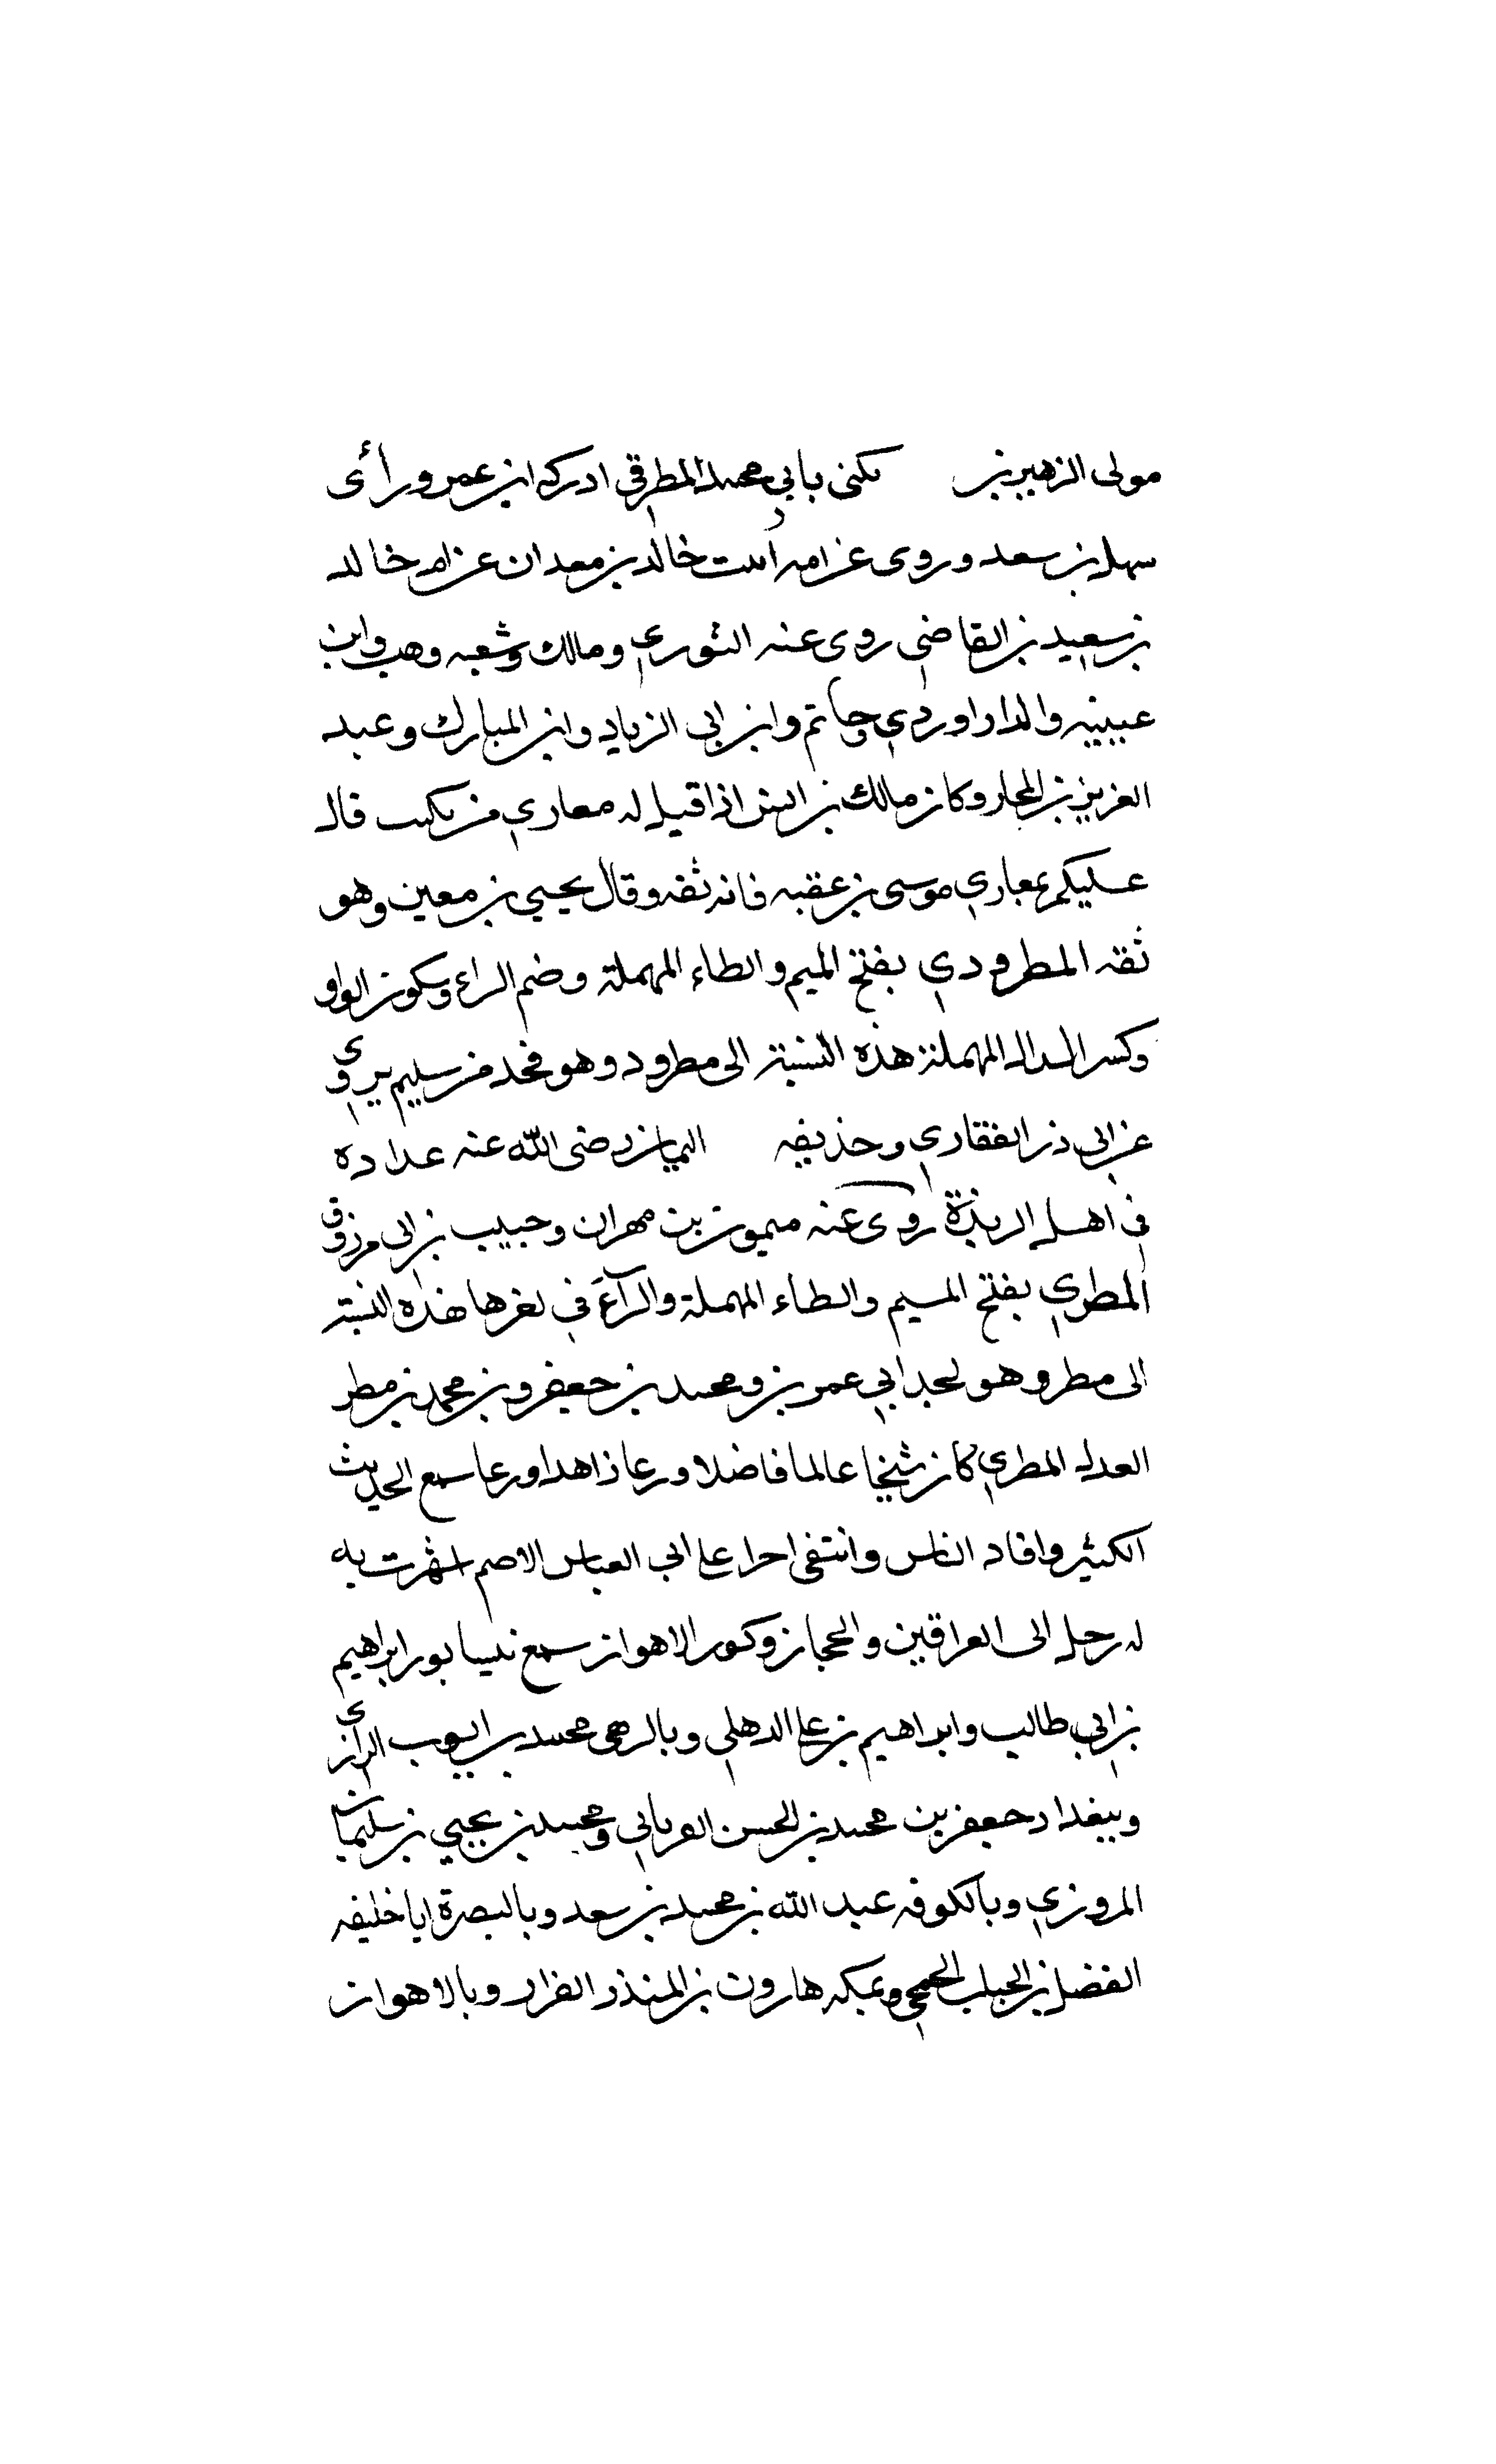 مولى الزهير بن يكنى بابي محمد المطرقي ادرك ابن عمر ورأى
سهل بن سعد وروى عن امه امت خالد بن معدان عن ام خالد
بن سعيد بن القاضي روى عنه الثوري ومالك وشعبه وهب وابن
عيينيه والداراوردي وحاتم وابن ابى الزياد وابن المبارك وعبد
العزيز بن المجار وكان مالك بن انس اذا قيل له معاري من نكتب قال
عليكم بمعاري موسى بن عقبه فانه ثقه وقال يحيي بن معين وهو
ثقه المطرودي بفتح الميم والطاء المهملة وضم الراء وسكون الواو
وكسر الدال المهملة هذه النسبة الى مطرود وهو فخد من سليم يروى
عن ابى ذر الفقاري وحذيفه اليمان رضى الله عنه عداده
في اهل الربذة روى عنه ميمون بن مهران وحبيب بن ابى مرزوق
المطري بفتح الميم والطاء المهملة والرآء في لغرها هذه النسبة
الى مطر وهو لجد ابي عمر بن ومحمد بن جعفر وبن محمد بن مطر
العدل المطري كان شيخا عالما فاضلا ورعا زاهدا ورعا سمع الحديث
الكثير وافاد الناس وانتفى احرا على ابى العباس الاصم اشهرت به
له رحل الى العراقين والحجاز وكور الاهواز سمع نيسابور ابراهيم
بن ابي طالب وابراهيم بن على الدهلي وبالرهى محمد بن ايوب الرازى
وببغداد جعفر بن محمد بن الحسن الفريابي ومحمد بن يحيي بن سليمان
المروزي وبالكوفه عبد الله بن محمد بن سعد وبالبصرة ابا خليفه
الفضل بن الحباب الجمحي وبمكه هارون بن المنذر القزاز وبالاهواز